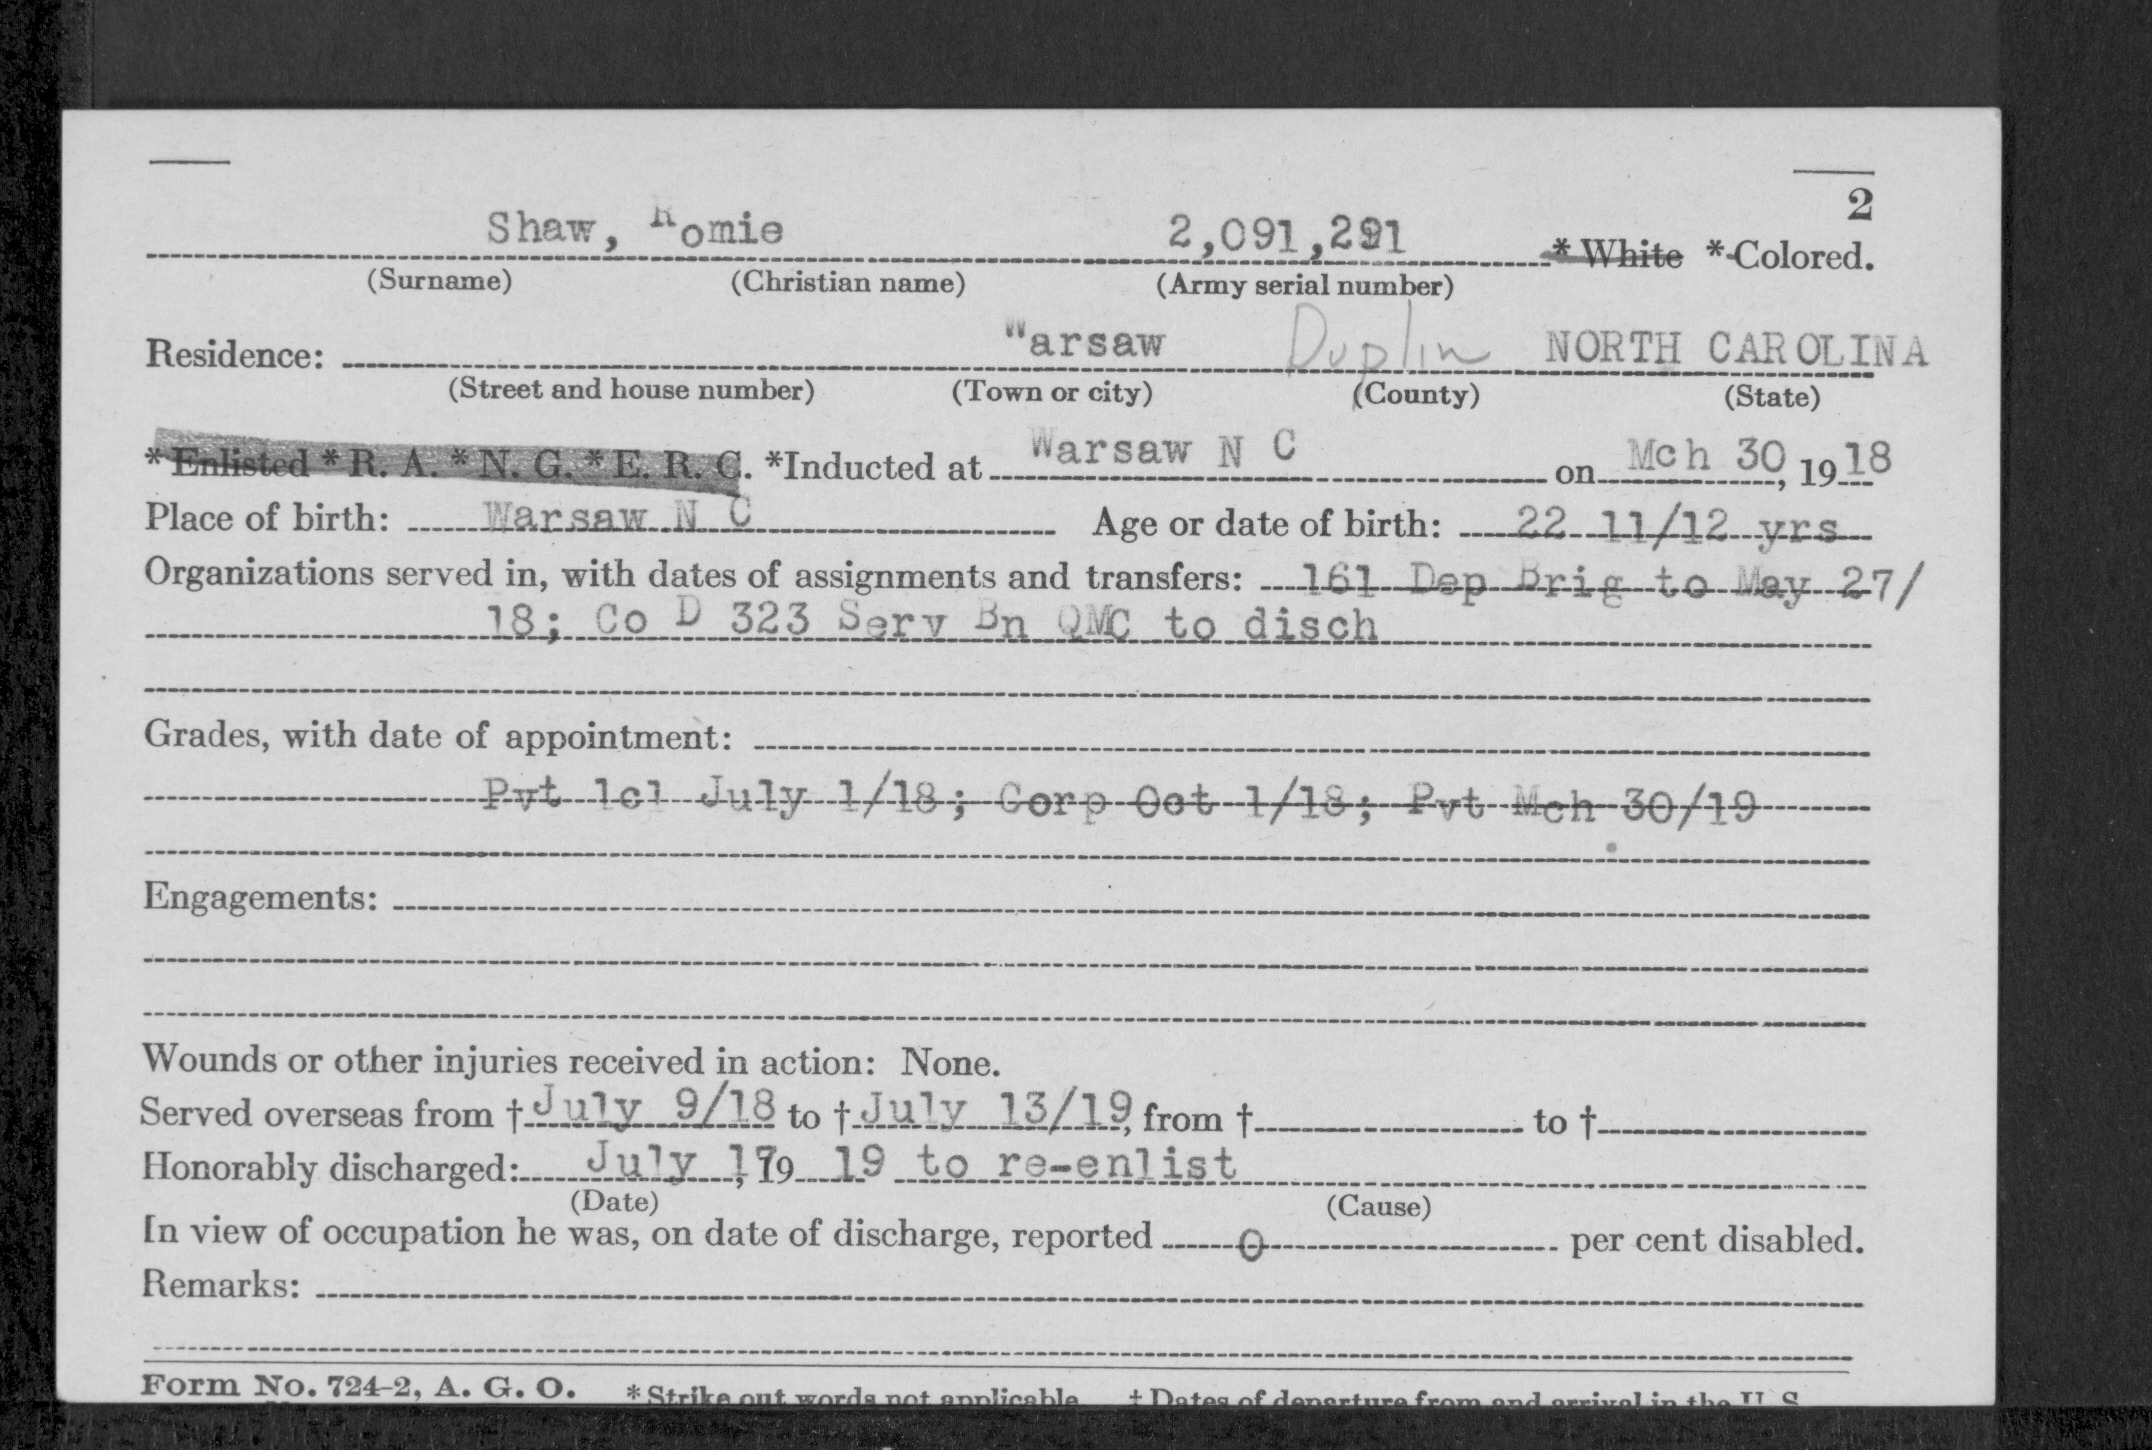 2
Shaw, Romie 2,091,291 * White * Colored.
(Surname) (Christian name) (Army serial number)
Residence: Warsaw Duplin NORTH CAROLINA
(Street and house number) (Town or city) (County) (State)
* Enlisted * R. A. * N. G. * E. R. C. *Inducted at Warsaw N C on Mch 30, 1918
Place of birth: Warsaw N C Age or date of birth: 22 11/12 yrs
Organizations served in, with dates of assignments and transfers: 161 Dep Brig to May 27/
18; Co D 323 Serv Bn QMC to disch
Grades, with date of appointment:
Pvt 1cl July 1/18; Corp Oct 1/18; Pvt Mch 30/19
Engagements:
Wounds or other injuries received in action: None.
Served overseas from † July 9/18 to † July 13/19, from † to †
Honorably discharged: July 17, 19 19 to re-enlist
(Date) (Cause)
In view of occupation he was, on date of discharge, reported 0 per cent disabled.
Remarks:
Form No. 724-2, A. G. O. * Strike out words not applicable † Dates of departure from and arrival in the U S